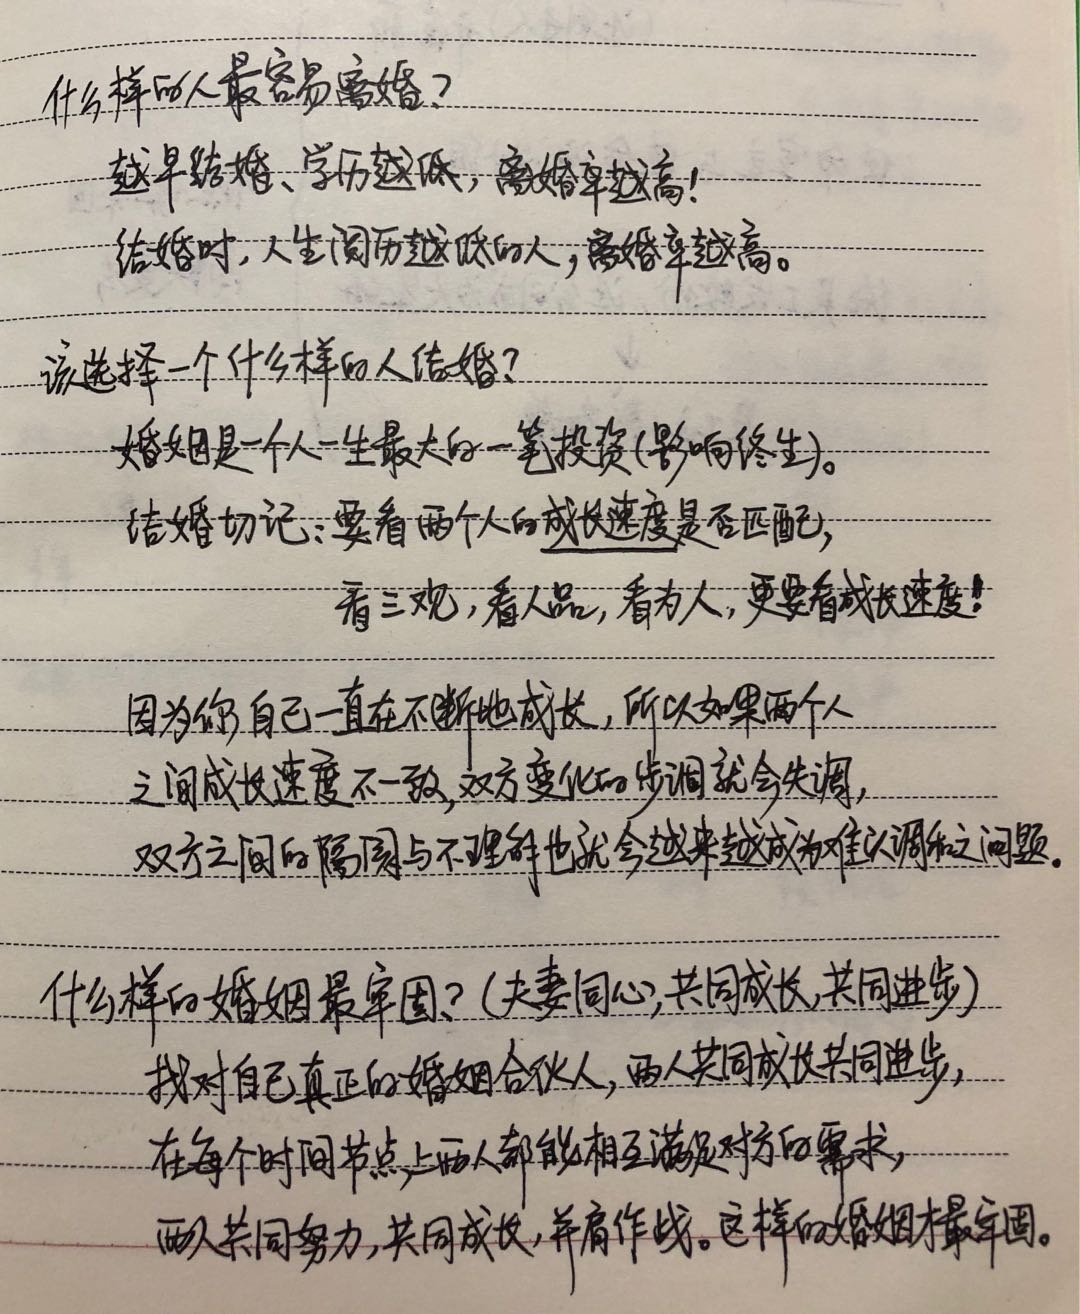 什么样的人最容易离婚?
越早结婚、学历越低,离婚率越高!
结婚时,人生阅历越低的人,离婚率越高。
该选择一个什么样的人结婚?
婚姻是一个人一生最大的一笔投资(影响终生)。
结婚切记:要看两个人的成长速度是否匹配,
看三观,看人品,看为人,更要看成长速度!
因为你自己一直在不断地成长,所以如果两个人
之间成长速度不一致,双方变化的步调就会失调,
双方之间的隔阂与不理解也就会越来越成为难以调和之问题。
什么样的婚姻最牢固?(夫妻同心,共同成长,共同进步)
找对自己真正的婚姻合伙人,两人共同成长共同进步,
在每个时间节点上两人都能相互满足对方的需求,
两人共同努力,共同成长,并肩作战。这样的婚姻才最牢固。